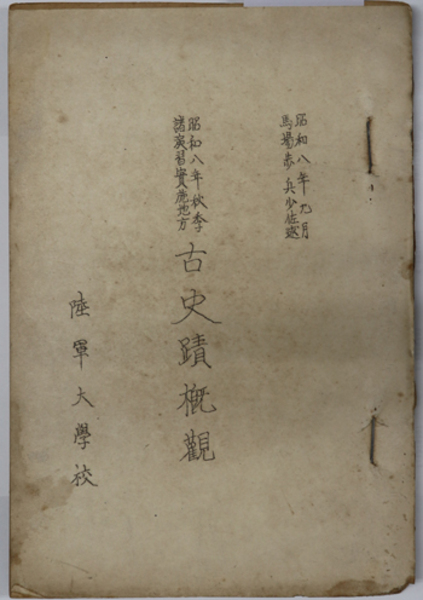 昭和八年九月
馬場歩兵少佐述
昭和八年秋季
諸演習實施地方
古史蹟概觀
陸軍大學校